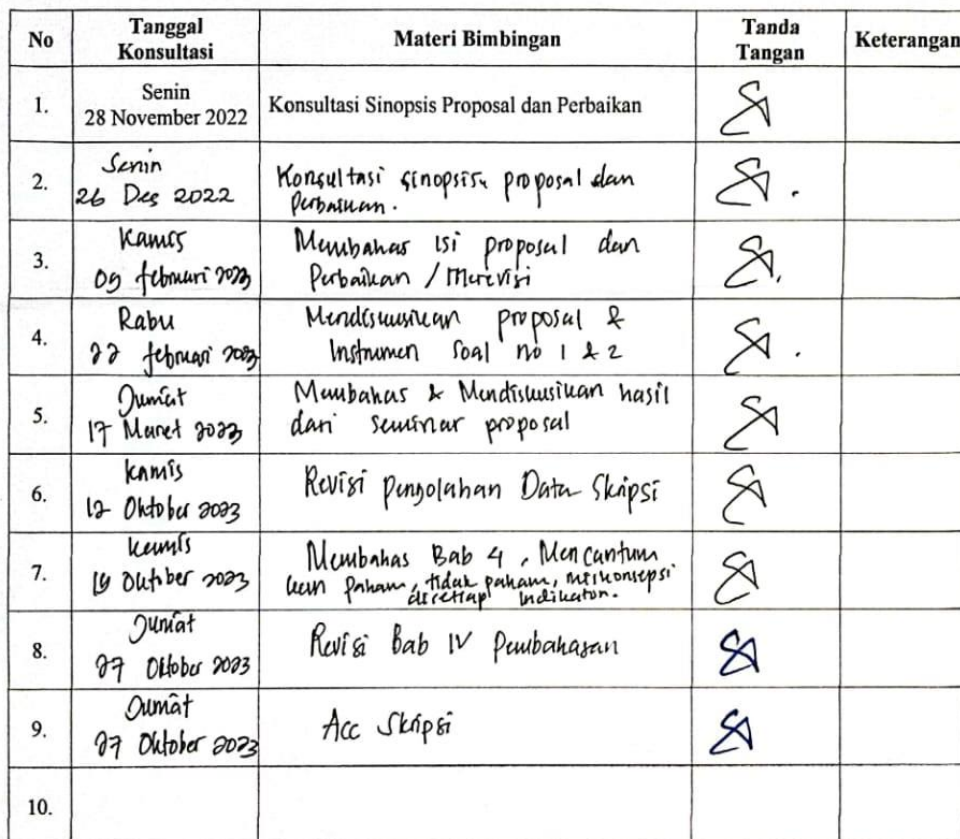 No Tanggal Konsultasi Materi Bimbingan Tanda Tangan Keterangan
1. Senin
28 November 2022 Konsultasi Sinopsis Proposal dan Perbaikan
2. Senin
26 Des 2022 Konsultasi sinopsis proposal dan
Perbaikan.
3. Kamis
09 februari 2023 Membahas isi proposal dan
Perbaikan / Merevisi
4. Rabu
22 februari 2023 Mendiskusikan proposal &
Instrumen Soal no 1 & 2
5. Jumat
17 Maret 2023 Membahas & Mendiskusikan hasil
dari seminar proposal
6. Kamis
12 Oktober 2023 Revisi Pengolahan Data Skripsi
7. Kamis
19 Oktober 2023 Membahas Bab 4, Mencantum
kan Paham, tidak paham, miskonsepsi
disetiap Indikator.
8. Jumat
27 Oktober 2023 Revisi Bab IV Pembahasan
9. Jumat
27 Oktober 2023 Acc Skripsi
10.